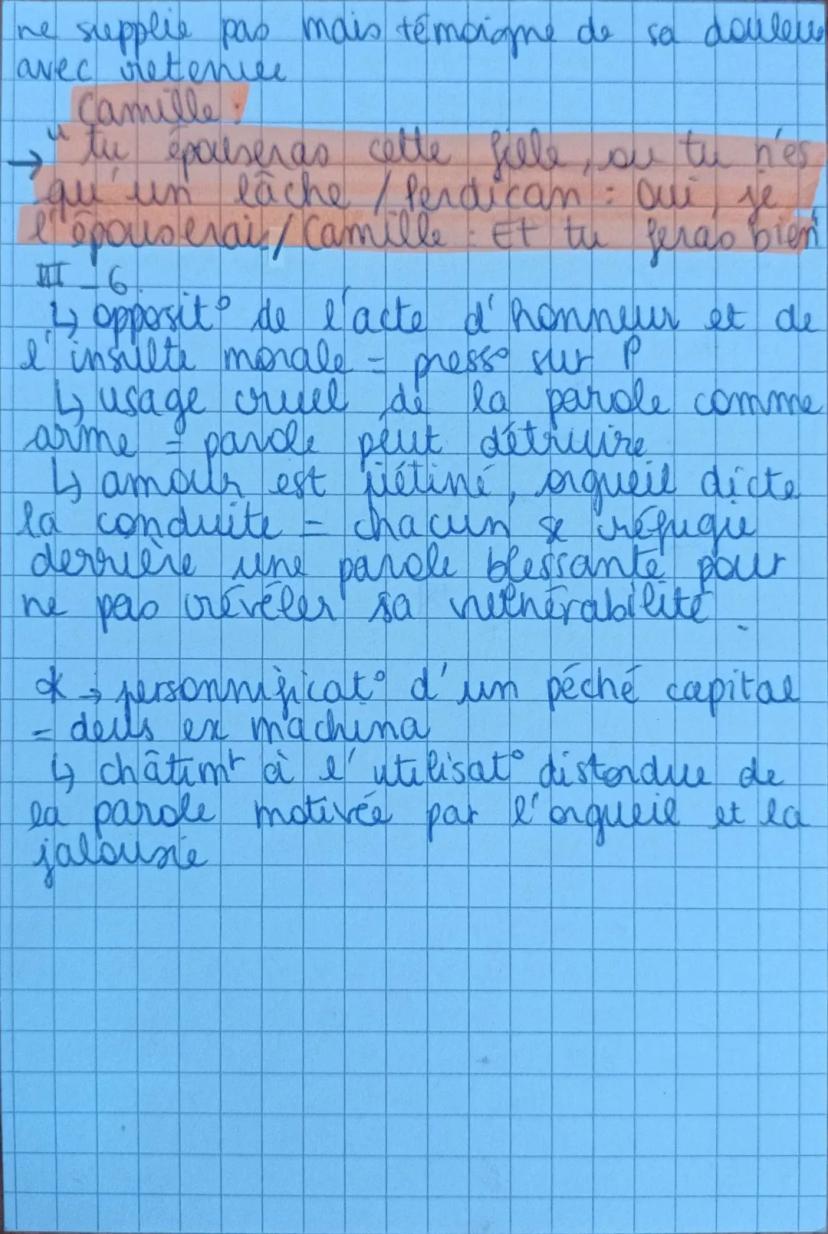 ne supplie pas mais témoigne de sa douleur
avec retenue
Camille :
→ "tu épouseras cette fille, ou tu n'es
qu'un lâche / Perdican : Oui, je
l'épouserai / Camille : Et tu feras bien
III - 6
↳ opposit° de l'acte d'honneur et de
l'insulte morale = press° sur P
↳ usage cruel de la parole comme
arme = parole peut détruire
↳ amour est piétiné, orgueil dicte
la conduite = chacun se réfugie
derrière une parole blessante pour
ne pas révéler sa vulnérabilité.
* → personnificat° d'un péché capital
= deus ex machina
↳ châtimt à l'utilisat° distordue de
la parole motivée par l'orgueil et la
jalousie